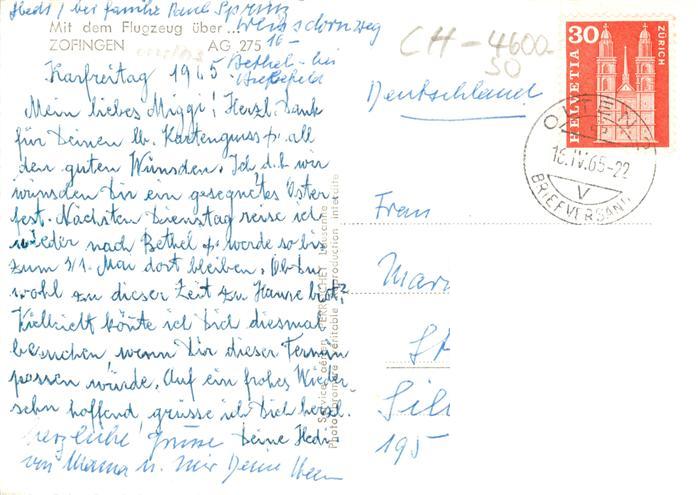 Hedi / bei Familie Paul Sprunz
Weissdornweg
Mit dem Flugzeug über...
16-
ZOFINGEN AG 275
CH-4600-
50
Bethel-bei
Bielefeld
Karfreitag 1965
Deutschland
Mein liebes Miggi! Herzl. Dank
für Deinen lb. Kartengruss & all
den guten Wünschen. Ich, d.h. wir
wünschen Dir ein gesegnetes Oster
fest. Nächsten Dienstag reise ich
wieder nach Bethel & werde so bis
zum 31. Mai dort bleiben. Ob Du
wohl zu dieser Zeit zu Hause bist?
Vielleicht könnte ich Dich diesmal
besuchen, wenn Dir dieser Termin
passen würde. Auf ein frohes Wieder
sehn hoffend, grüsse ich Dich herzl.
Deine Hedi
herzliche Grüsse
von Mama u. mir Deine
Service aérien PERROCHET Lausanne
Photobromure véritable Reproduction interdite
30
HELVETIA
ZÜRICH
OLTEN
16.IV.65-22
V
BRIEFVERSAND
Frau
Mari
St
Sil
195